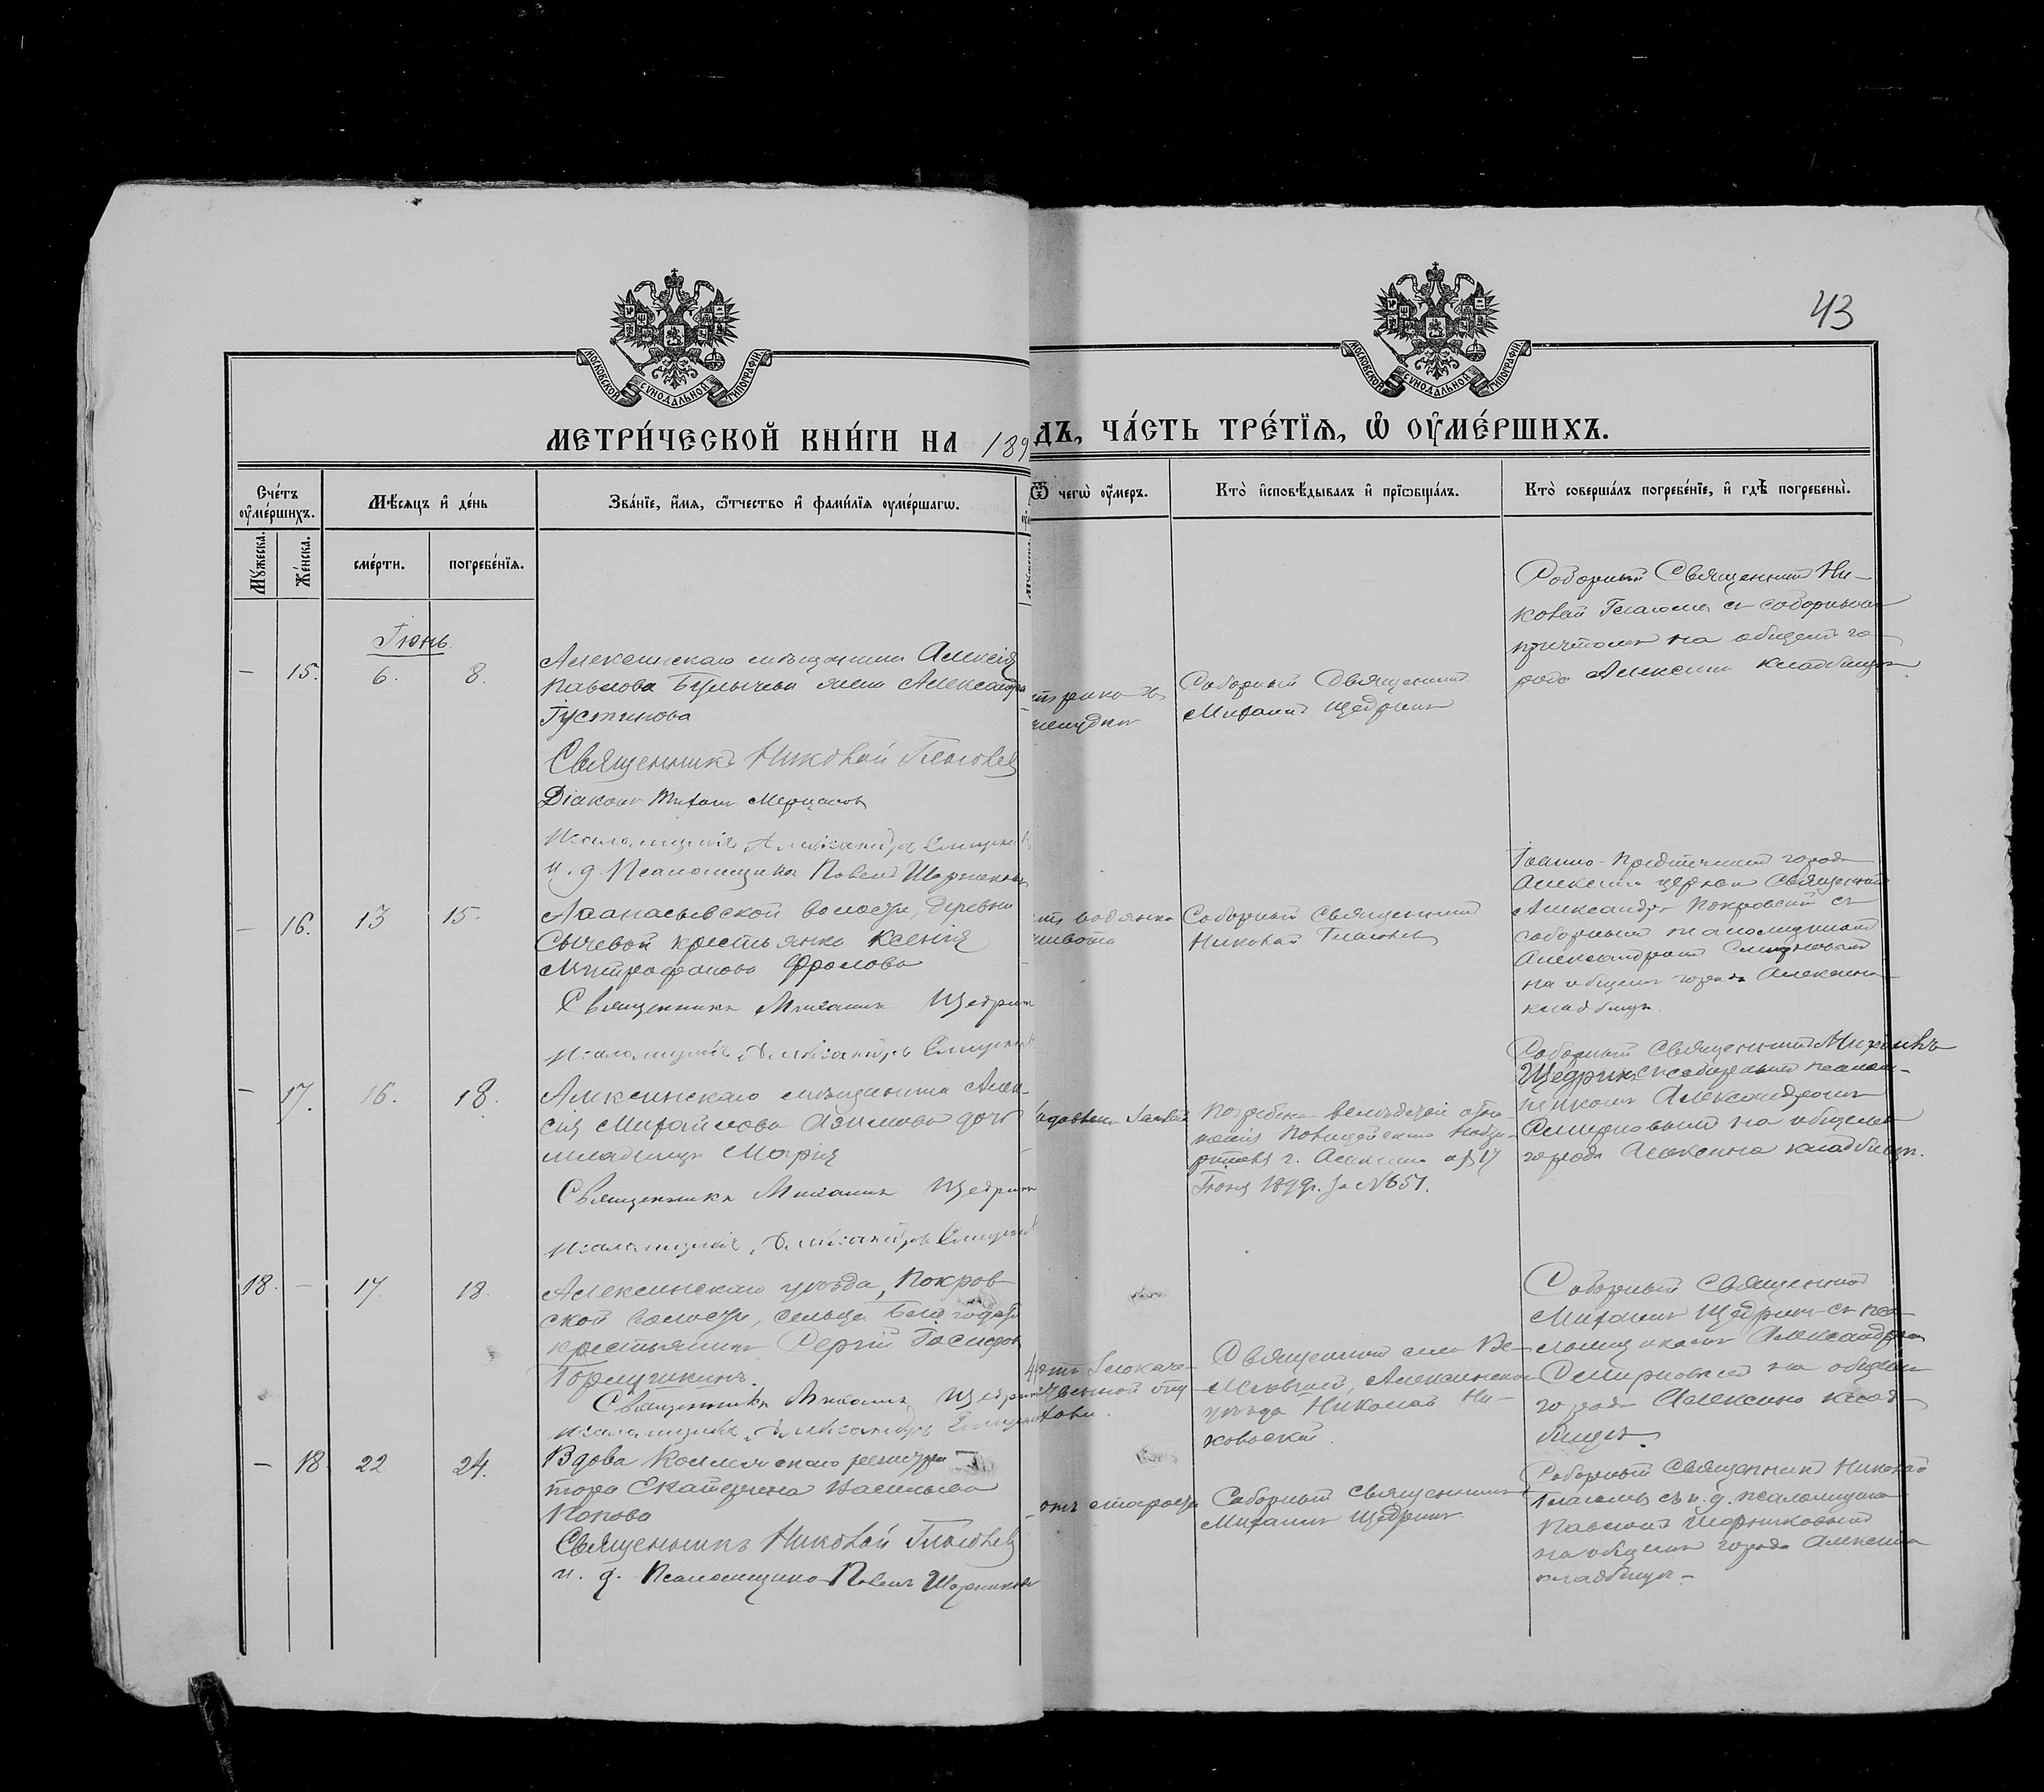 43
МОСКОВСКОЙ СѴНОДАЛЬНОЙ ТИПОГРАФІИ
МОСКОВСКОЙ СѴНОДАЛЬНОЙ ТИПОГРАФІИ
МЕТРИ́ЧЕСКОЙ КНИ́ГИ НА 189
ДЪ, ЧА́СТЬ ТРЕ́ТЇЯ, Ѽ ОУ҆МЕ́РШИХЪ.
Сче́тъ
оу҆ме́ршихъ.
Мѣ́сяцъ и҆ де́нь
Зва́нїе, и҆́мя, ѻ҆́тчество и҆ фами́лїя оуме́ршагѡ.
Ѿ чегѡ̀ оу҆́меръ.
Кто̀ и҆сповѣ́дывалъ и҆ прїѡбща́лъ.
Кто̀ соверша́лъ погребе́нїе, и҆ гдѣ̀ погребены̀.
Мꙋ́жеска.
Же́нска.
сме́рти.
погребе́нїя.
Іюнь.
— 15. 6. 8.
Алексинскаго мѣщанина Алексія
Павлова Булычева жена Александра
Іустинова
Священникъ Николай Глаголевъ
Діаконъ Михаилъ
Псаломщикъ Александръ Смирновъ
и. д. Псаломщика Павелъ
желудка
Соборный Священникъ
Михаилъ Щедринъ
Соборный Священникъ Ни-
колай Глаголевъ съ соборнымъ
причтомъ на общемъ го-
рода Алексина кладбищѣ
— 16. 13 15.
Аѳанасьевской волости, деревни
Сычевой крестьянка Ксенія
Митрофанова Фролова
Священникъ Михаилъ Щедринъ
Псаломщикъ Александръ Смирновъ
водянки
живота
Соборный Священникъ
Николай Глаголевъ
Іоанно-Предтечевской города
Алексина церкви Священникъ
Александръ Покровскій съ
соборнымъ псаломщикомъ
Александромъ Смирновымъ
на общемъ города Алексина
кладбищѣ.
— 17. 16. 18.
Алексинскаго мѣщанина Алек-
сія Михайлова дочь
младенца Марія
Священникъ Михаилъ Щедринъ
Псаломщикъ Александръ Смирновъ
Погребена вслѣдствіе отно-
шенія Полицейскаго Надзи-
рателя г. Алексина отъ 17
Іюня 1899г. за №651.
Соборный Священникъ Михаилъ
Щедринъ съ соборнымъ псалом-
щикомъ Александромъ
Смирновымъ на общемъ
города Алексина кладбищѣ.
18. — 17. 18.
Алексинскаго уѣзда, Покров-
ской волости, сельца
крестьянинъ Сергій Іосифовъ
Горлушкинъ.
Священникъ Михаилъ Щедринъ
Псаломщикъ Александръ Смирновъ
отъ злокаче-
ственной опу-
холи.
Священникъ села
Алексинскаго
уѣзда Николай Ни-
Соборный Священникъ
Михаилъ Щедринъ съ пса-
ломщикомъ Александромъ
Смирновымъ на общемъ
города Алексина клад-
бищѣ.
— 18 22 24.
Вдова Коллежскаго регистра-
тора Екатерина Васильева
Попова
Священникъ Николай Глаголевъ
и. д. Псаломщика Павелъ
отъ старости
Соборный Священникъ
Михаилъ Щедринъ
Соборный Священникъ Николай
Глаголевъ съ и. д. псаломщика
Павломъ
на общемъ города Алексина
кладбищѣ.